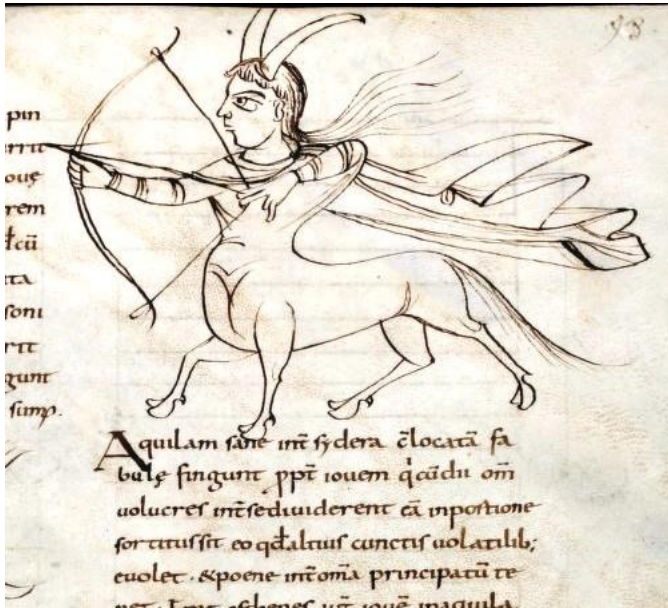 pin
ouę
rem
ta
soni
gunt
simp.
Aquilam sane int sydera c̄locatā fa
bulę fingunt ppt̄ iouem q̇ cū dii om̄
uolucres int̄ se diuiderent eā inportione
sortitus sit eo qđ altius cunctis uolatilib;
euolet. & poene int̄ om̄a principatū te